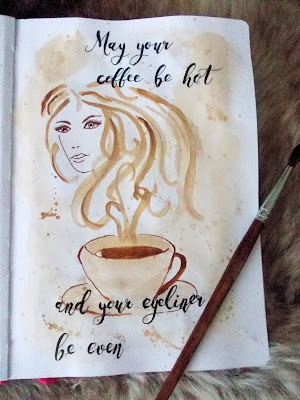 May your
coffee be hot
and your eyeliner
be even